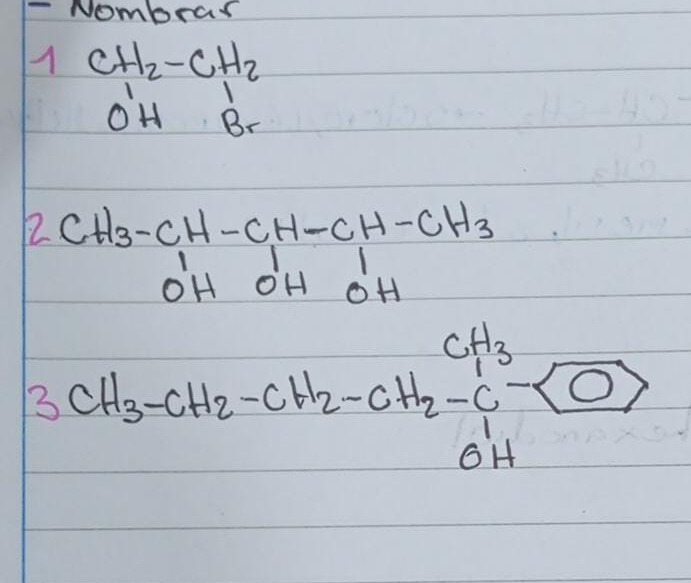 - Nombrar
1 CH2-CH2
OH Br
2 CH3-CH-CH-CH-CH3
OH OH OH
CH3
3 CH3-CH2-CH2-CH2-C-
OH